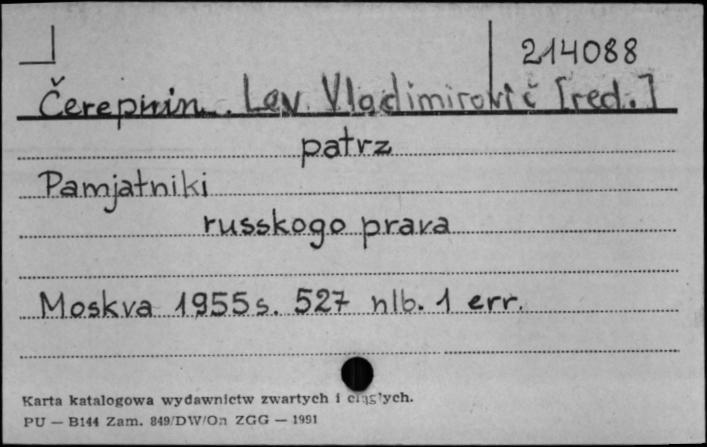 214088
Čerepnin. Lev Vladimirovič [red.]
patrz
Pamjatniki
russkogo prava
Moskva 1955 s. 527 nlb. 1 err.
Karta katalogowa wydawnictw zwartych i ciągłych.
PU — B144 Zam. 849/DW/On ZGG — 1991